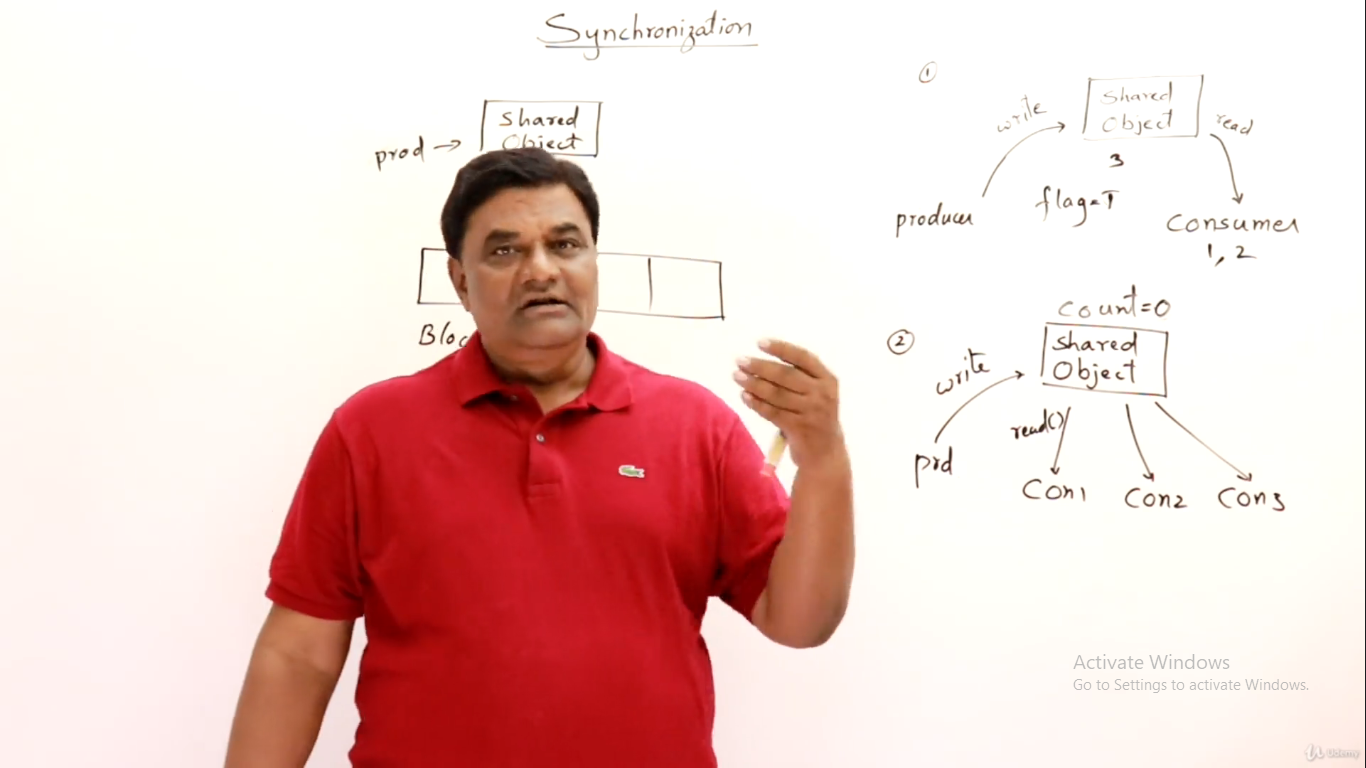 Synchronization
prod → Shared
Object
①
write
Shared
Object
read
3
flag=T
producer
Consumer
1, 2
Count=0
②
write
Shared
Object
read()
prd
Con1 Con2 Con3
Activate Windows
Go to Settings to activate Windows.
Udemy